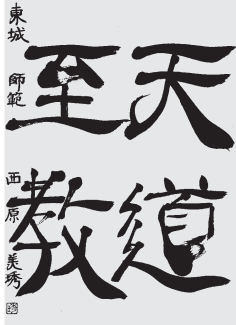 天道
至教
東城 師範 西原 美秀